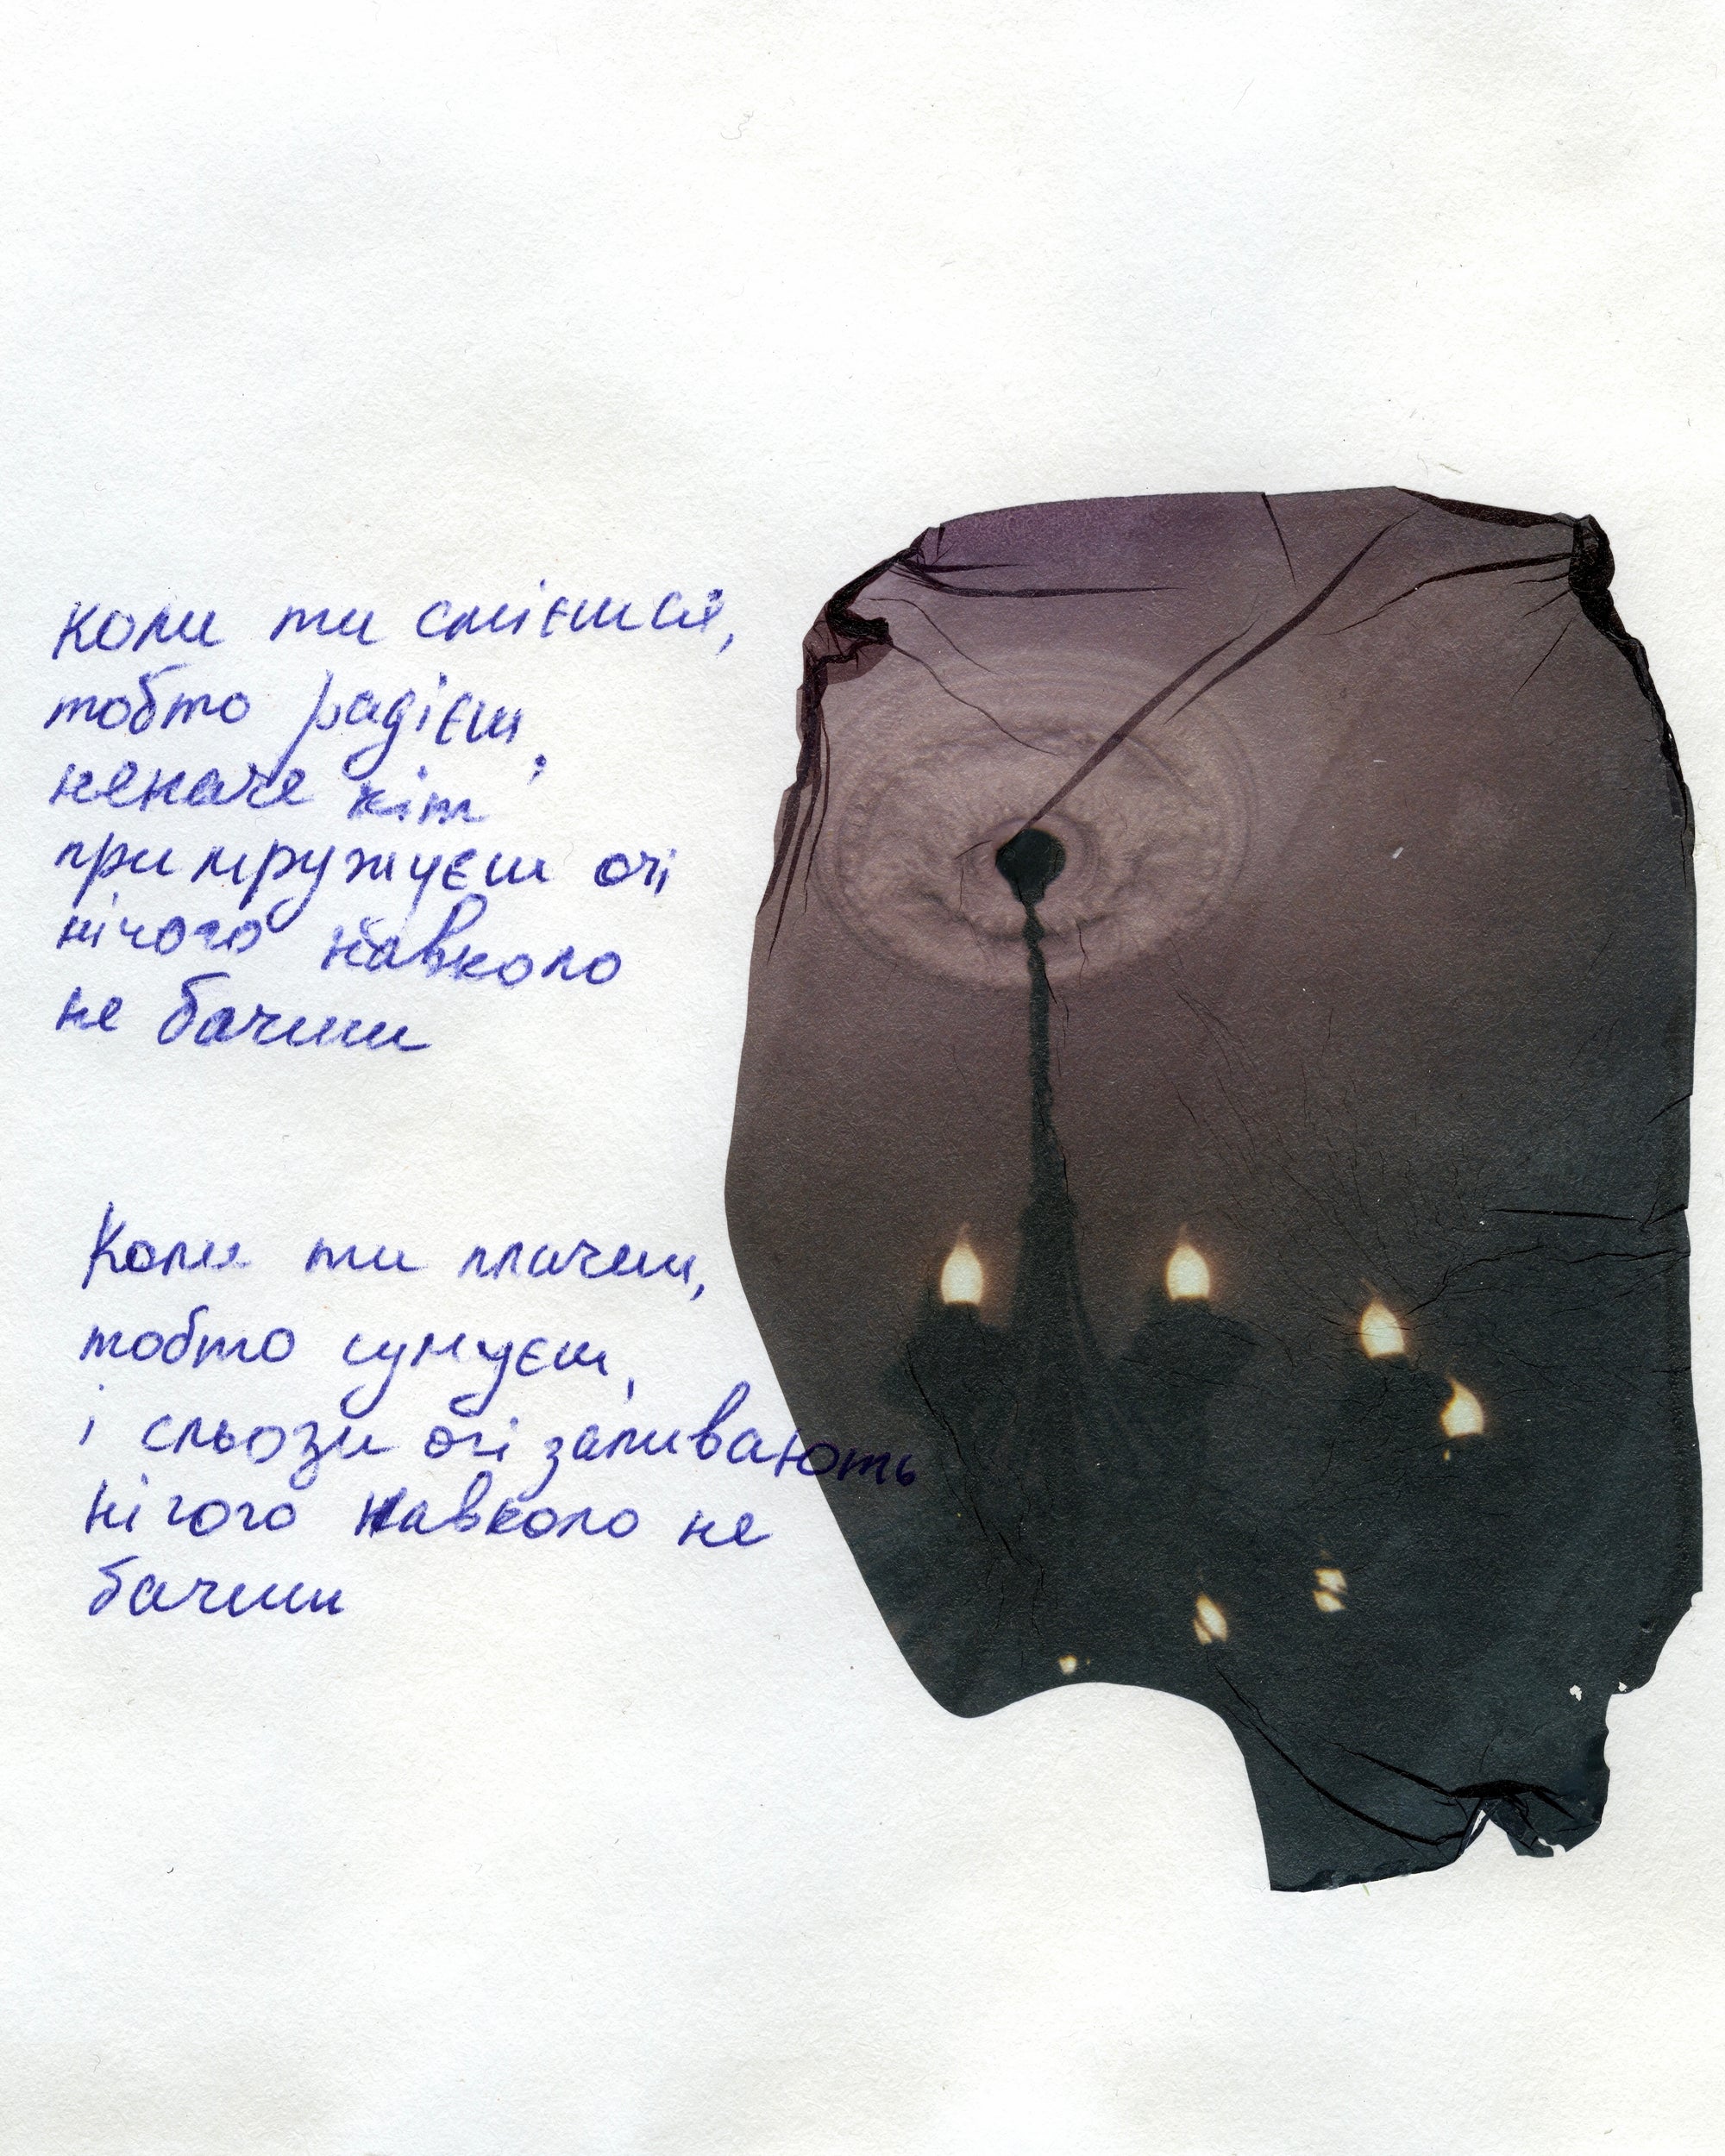 коли ти смієшся,
тобто радієш,
неначе кіт
примружуєш очі
нічого навколо
не бачиш
Коли ти плачеш,
тобто сумуєш,
і сльози очі заливають
нічого навколо не
бачиш